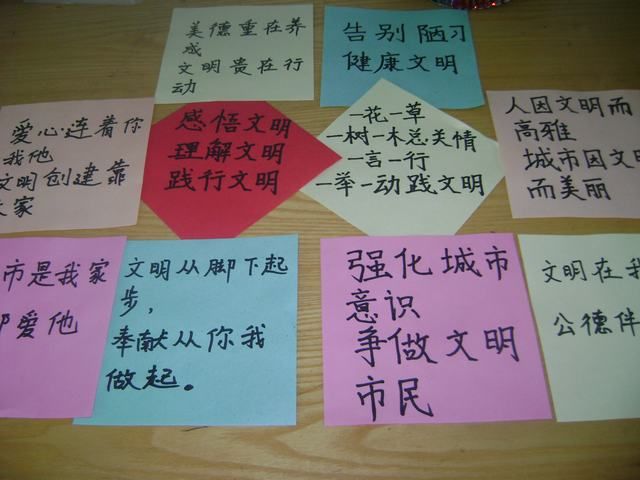 美德重在养
成
文明贵在行
动
告别陋习
健康文明
爱心连着你
我他
文明创建靠
大家
感悟文明
理解文明
践行文明
一花一草
一树一木总关情
一言一行
一举一动践文明
人因文明而
高雅
城市因文明
而美丽
市是我家
都爱他
文明从脚下起
步,
奉献从你我
做起。
强化城市
意识
争做文明
市民
文明在我
公德伴